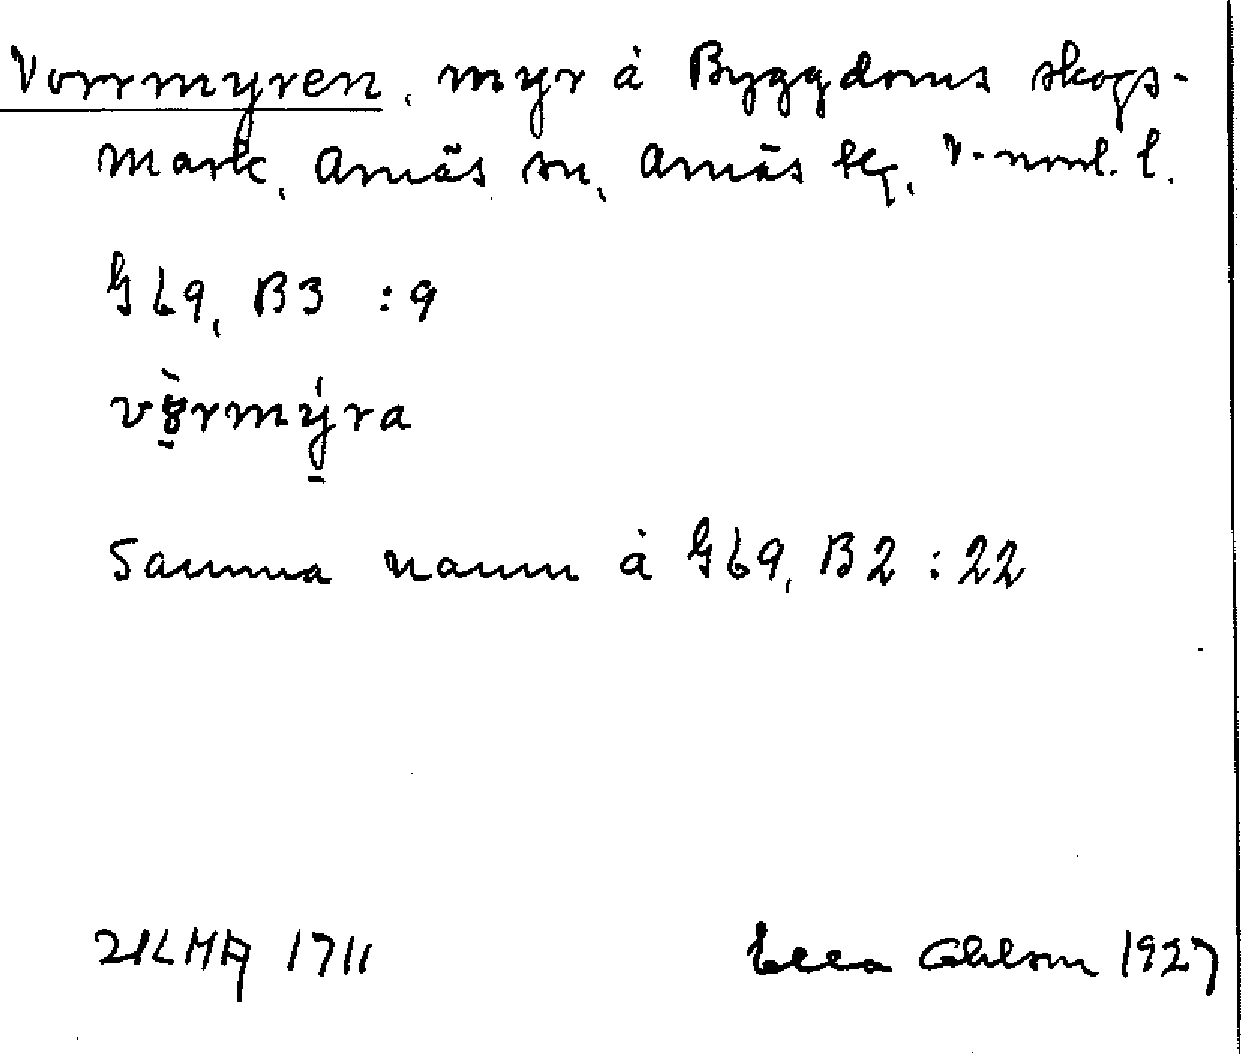 Vorrmyren, myr å Byggdoms skogs-
mark, Arnäs sn, Arnäs tg, V-nrrl. l.
G69, B3 :9
vȣ̀rmýra
Samma namn å G69, B2 :22
ULMA 1711
Ella Ohlson 1927